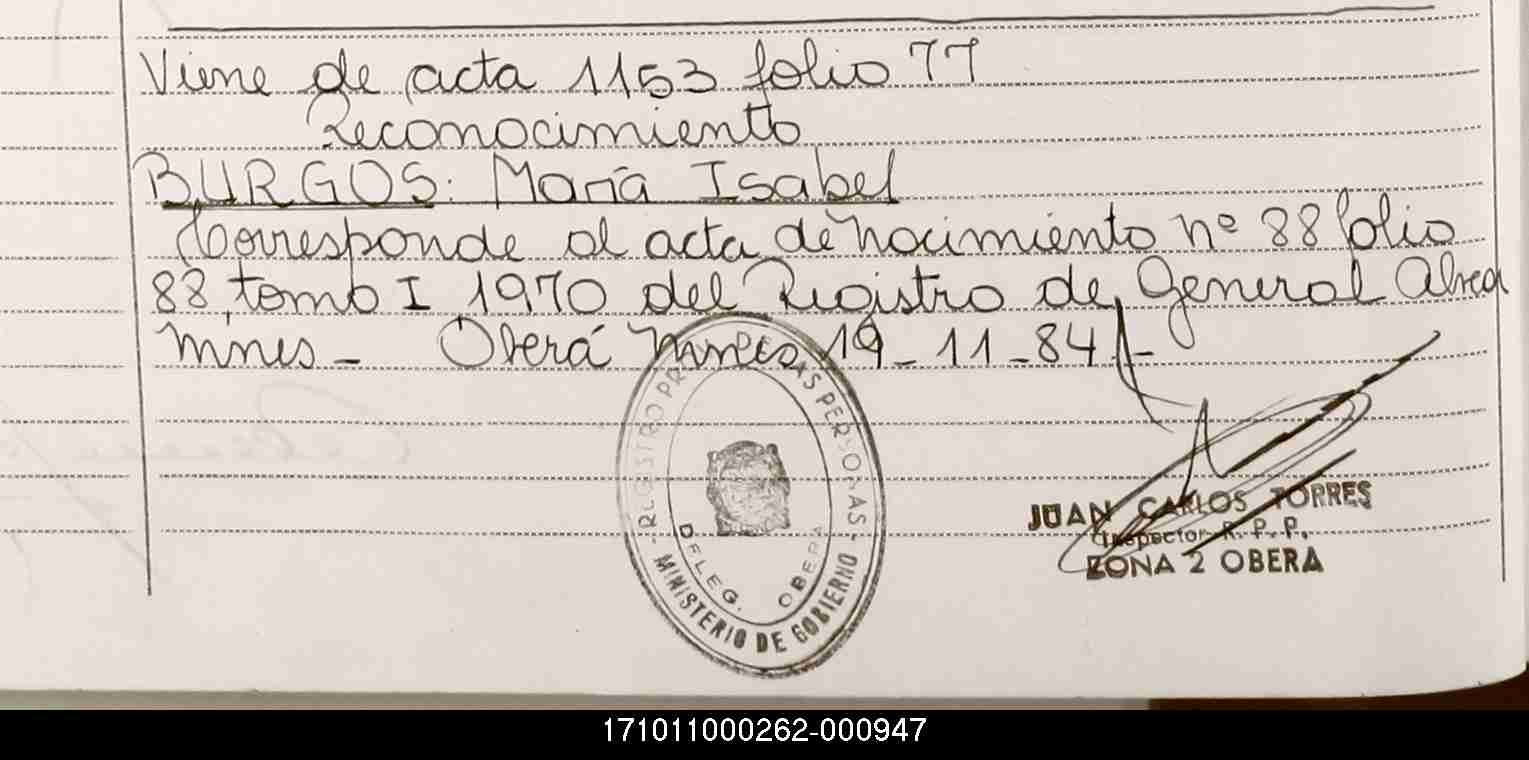 Viene de acta 1153 folio 77
Reconocimiento
BURGOS: María Isabel
Corresponde al acta de nacimiento nº 88 folio
88 tomo I 1970 del Registro de General Alvea
Mnes - Oberá Mnes 19-11-84
REGISTRO PR LAS PERSONAS
DELEG. OBERA
MINISTERIO DE GOBIERNO
JUAN CARLOS TORRES
Inspector R. P. P.
ZONA 2 OBERA
171011000262-000947